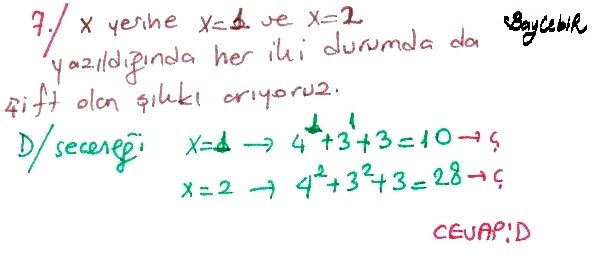 7./ x yerine x=1 ve x=2
BayCebiR
yazıldığında her iki durumda da
çift olan şıkkı arıyoruz.
D/seceneği x=1 → 4¹+3¹+3=10→ç
x=2 → 4²+3²+3=28→ç
CEVAP:D